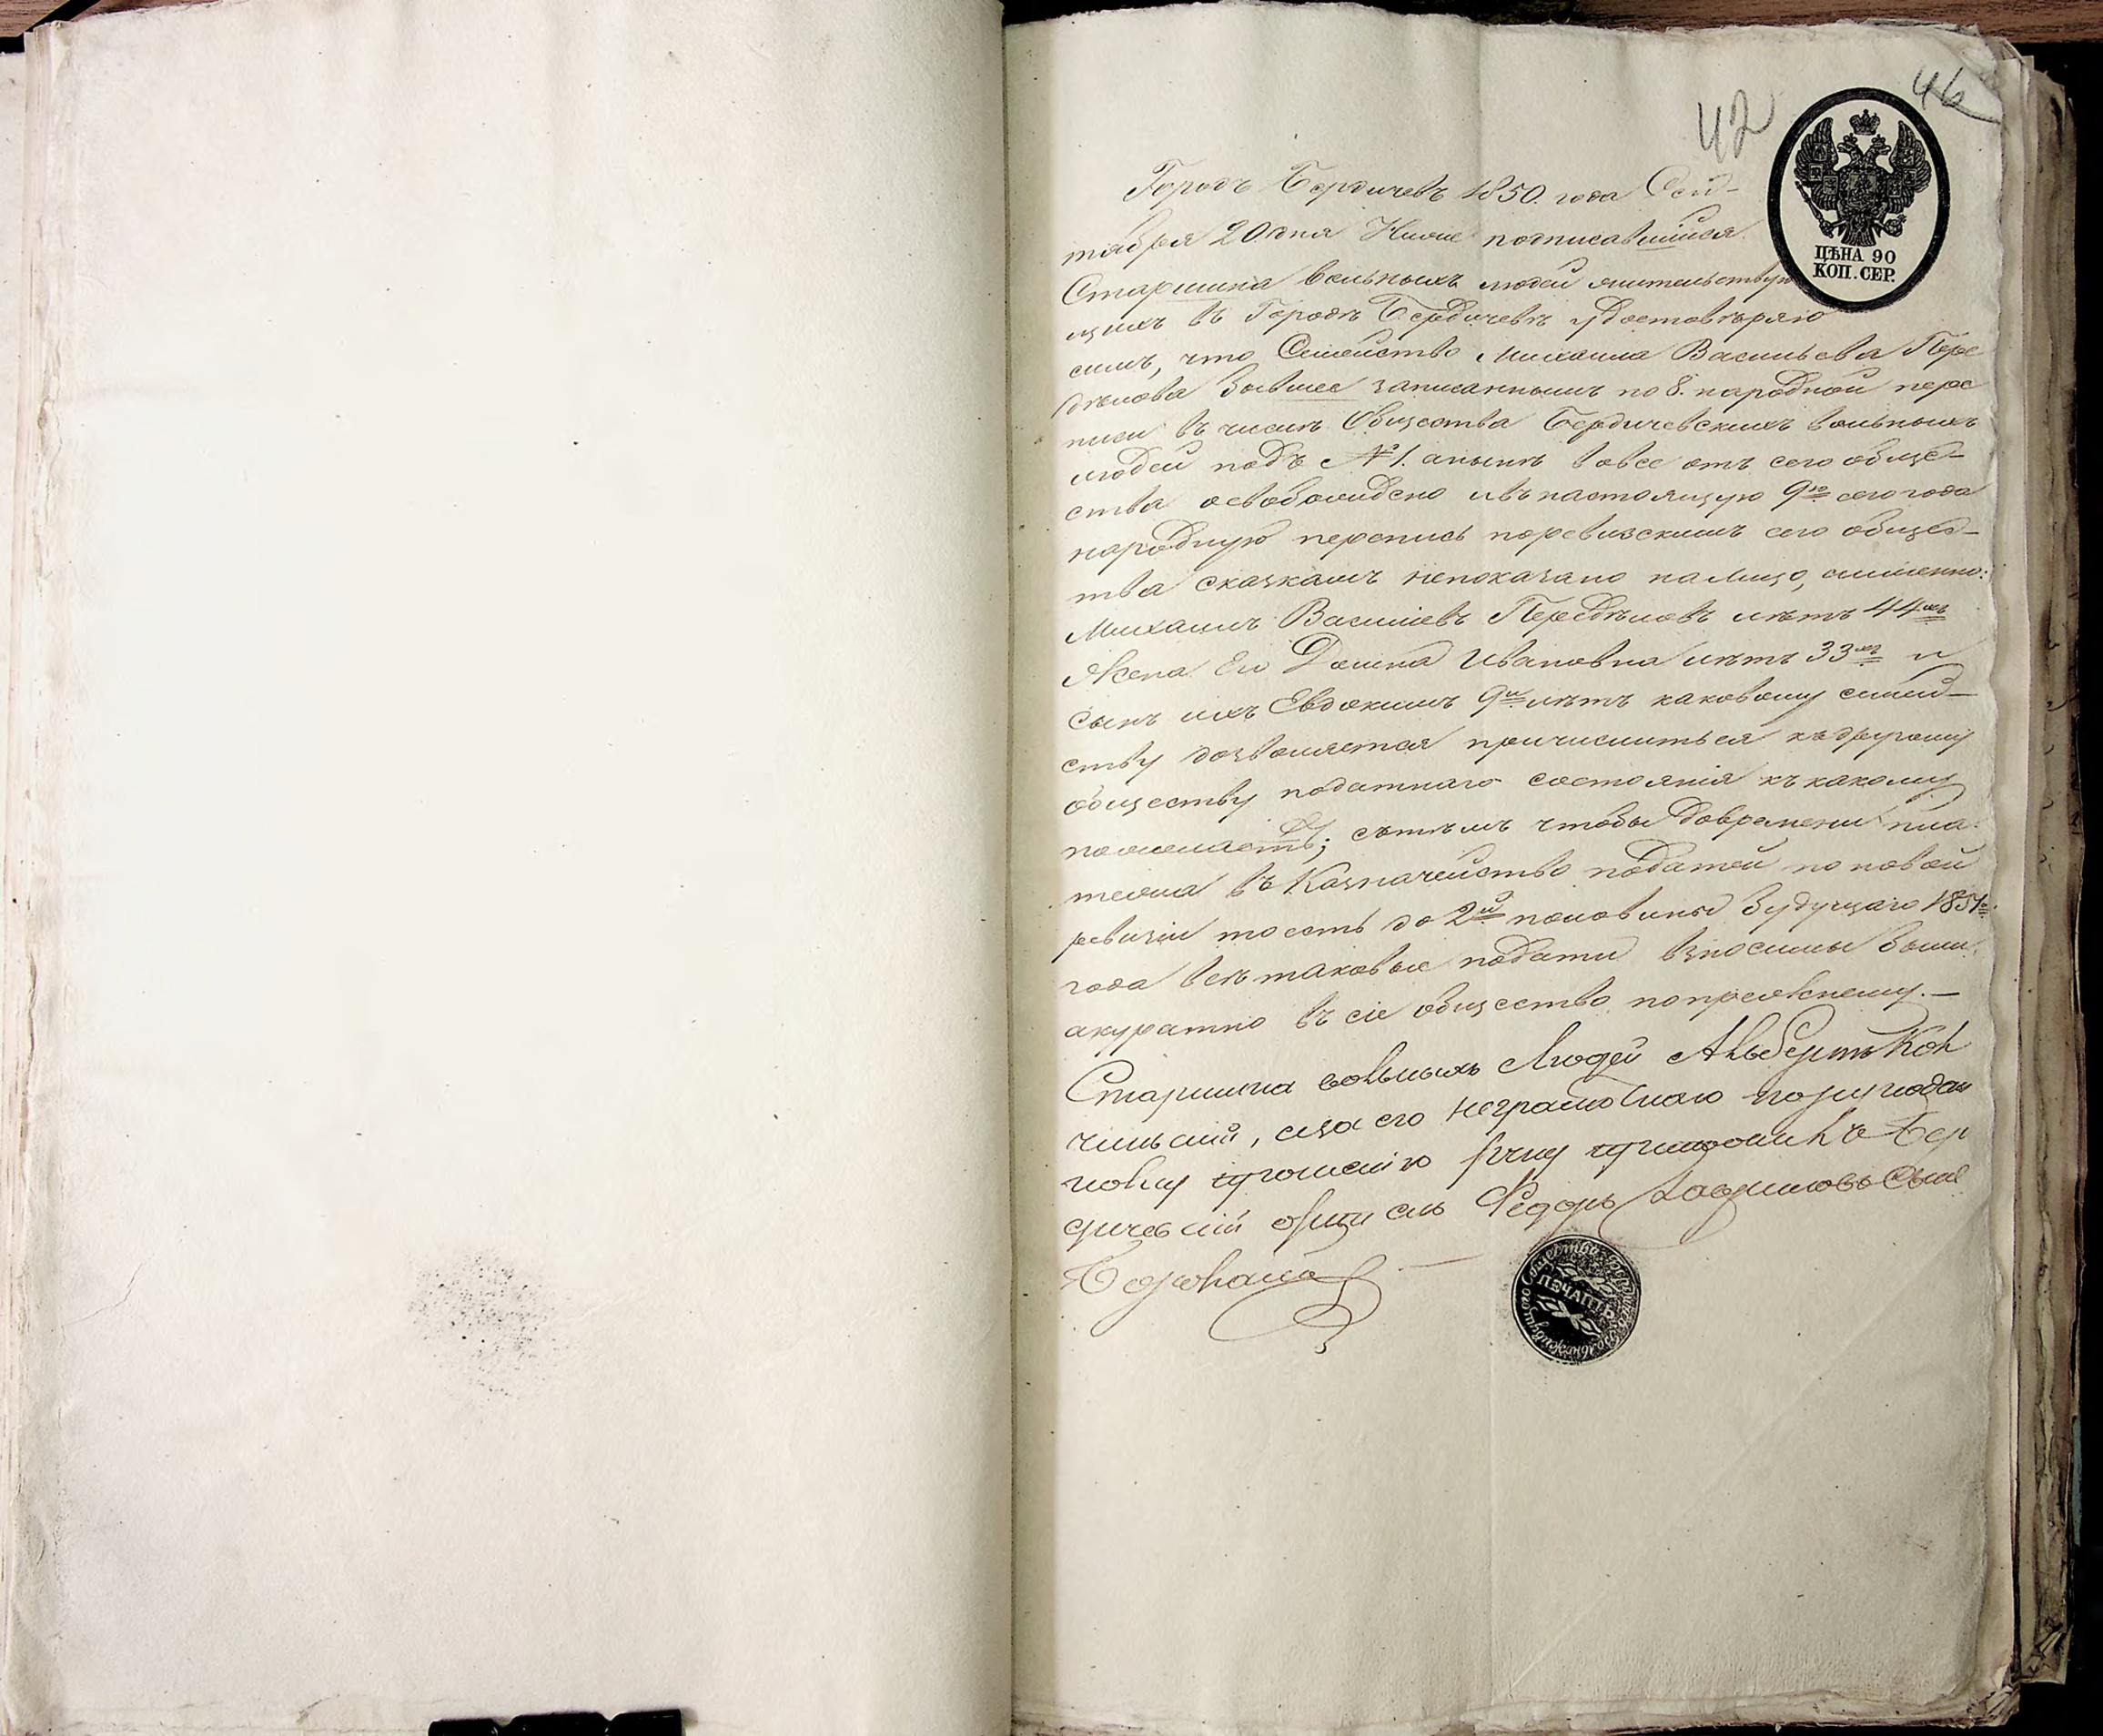 42
46
ЦѢНА 90
КОП. СЕР.
Городъ Бердичевъ 1850. года Сен-
тября 20 дня Ниже подписавшійся
Старшина вольныхъ людей жительствую
щихъ въ Городѣ Бердичевѣ удостовѣряю
симъ, что Семейство Михаила Васильева Пере
дѣлова бывшее записаннымъ по 8. народной пере
писи въ числѣ Общества Бердичевскихъ вольныхъ
людей подъ № 1. а нынѣ вовсе отъ сего обще-
ства освобождено и въ настоящую 9ю сего года
народную перепись по ревизскимъ сего общес-
тва сказкамъ непоказано на лицо, а именно:
Михаилъ Васильевъ Передѣловъ лѣтъ 44хъ
Жена Его Домна Ивановна лѣтъ 33хъ и
сынъ ихъ Евдокимъ 9и лѣтъ каковому семей-
ству дозволяется причислиться къ другому
обществу податнаго состоянія къ какому
пожелаетъ; съ тѣмъ чтобы до времени пла-
тежа въ Казначейство податей по новой
ревизіи то есть до 2й половины будущаго 1851го
года всѣ таковые подати взносимы были
акуратно въ сіе общество по прежнему. —
Старшина вольныхъ Людей Альбертъ Коп
чинскій, а за его неграмотнаго по рукодан
ному прошенію руку приложилъ Бер
дичевскій Федоръ сынъ
ПЕЧАТЬ